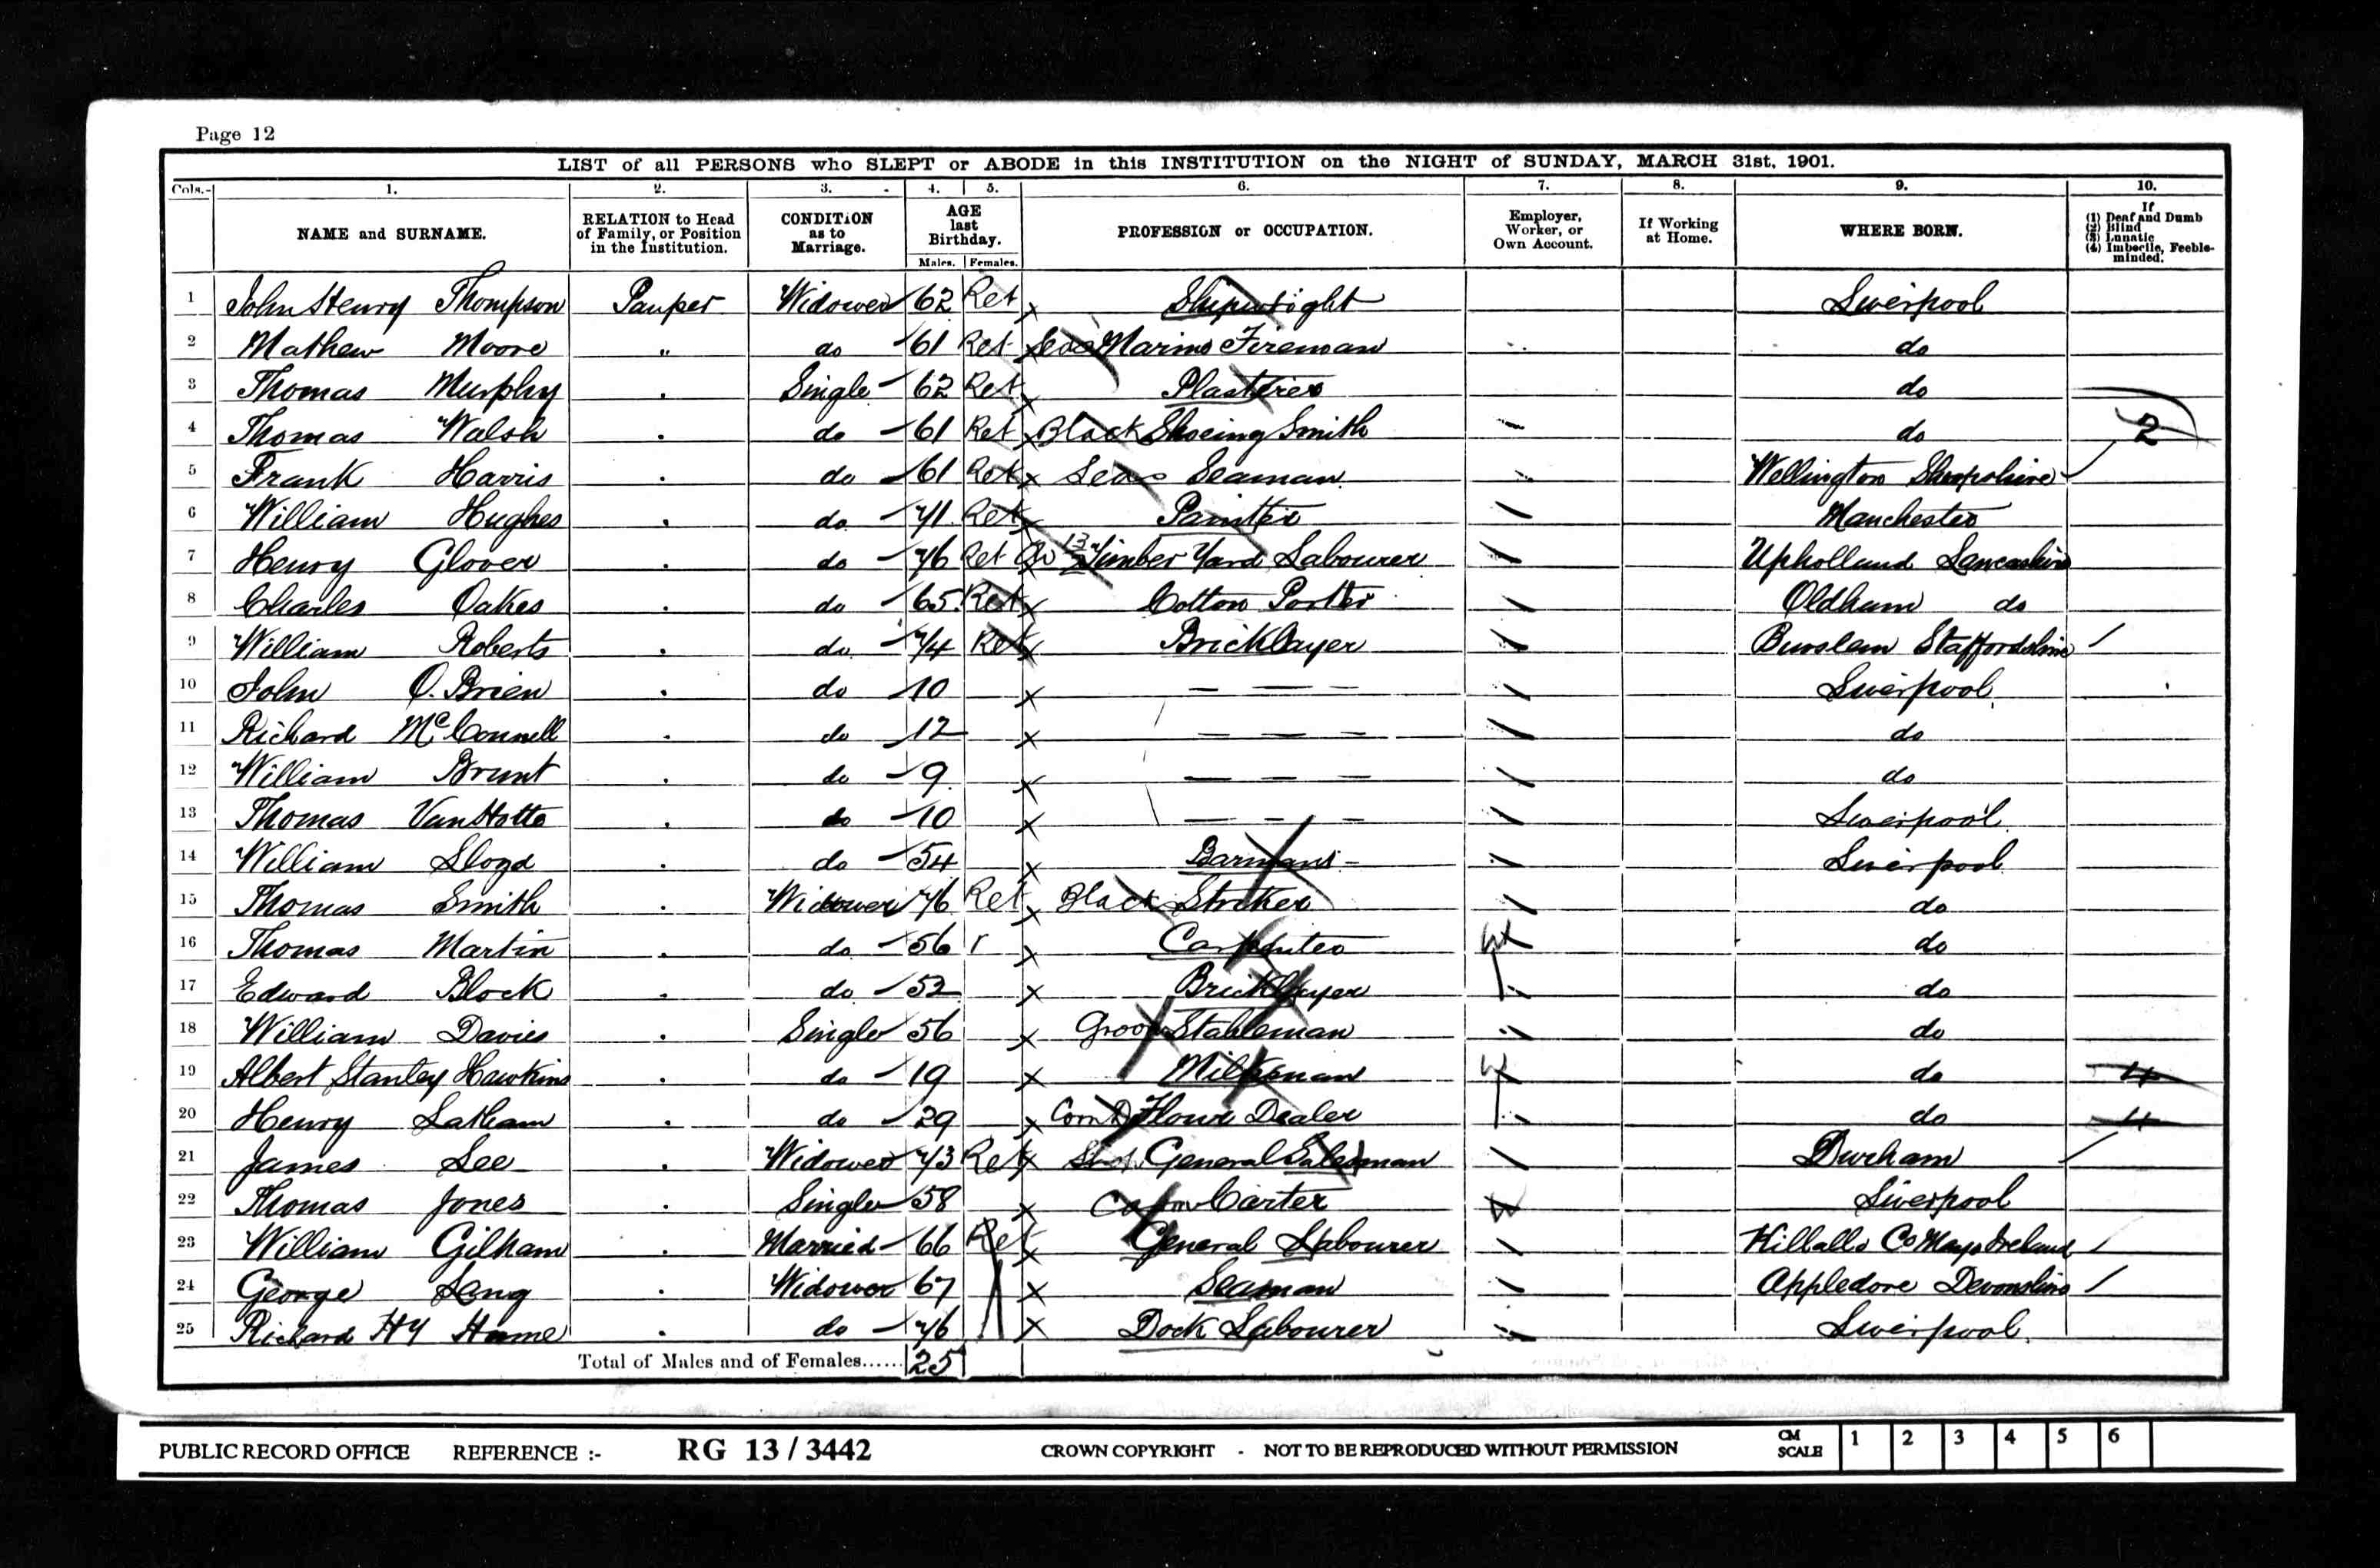 Page 12
LIST of all PERSONS who SLEPT or ABODE in this INSTITUTION on the NIGHT of SUNDAY, MARCH 31st, 1901.
Cols.- 1. 2. 3. 4. 5. 6. 7. 8. 9. 10.
NAME and SURNAME. RELATION to Head of Family, or Position in the Institution. CONDITION as to Marriage. AGE last Birthday. Males. Females. PROFESSION or OCCUPATION. Employer, Worker, or Own Account. If Working at Home. WHERE BORN. If (1) Deaf and Dumb (2) Blind (3) Lunatic (4) Imbecile, Feeble-minded.
1 John Henry Thompson Pauper Widower 62 Ret x Shipwright Liverpool
2 Mathew Moore " do 61 Ret Marine Fireman do
3 Thomas Murphy . Single 62 Ret x Plasterer do
4 Thomas Walsh . do 61 Ret x Black Shoeing Smith do 2
5 Frank Harris . do 61 Ret x Seas Seaman Wellington Shropshire
6 William Hughes . do 71 Ret x Painter Manchester
7 Henry Glover . do 76 Ret 13 Timber Yard Labourer Upholland Lancashire
8 Charles Oakes . do 65 Ret x Cotton Porter Oldham do
9 William Roberts . do 74 Ret x Bricklayer Burslem Staffordshire
10 John O.Brien . do 10 x — — — Liverpool
11 Richard McConnell . do 12 x — — — do
12 William Brunt . do 9 x — — — do
13 Thomas VanHotte . do 10 x — — — Liverpool
14 William Lloyd . do 54 x Barman Liverpool
15 Thomas Smith . Widower 76 Ret x Black Striker do
16 Thomas Martin . do 56 x Carpenter do
17 Edward Block . do 52 x Bricklayer do
18 William Davies . Single 56 x Groom Stableman do
19 Albert Stanley Hawkins . do 19 x Milkman do 4
20 Henry Latham . do 29 x Corn Flour Dealer do 4
21 James Lee . Widower 73 Ret x General Salesman Durham
22 Thomas Jones . Single 58 x Carter Liverpool
23 William Gilham . Married 66 Ret x General Labourer Killalla Co Mayo Ireland
24 George Leng . Widower 67 x Seaman Appledore Devonshire
25 Richard Hy Hume . do 76 x Dock Labourer Liverpool
Total of Males and of Females...... 25
PUBLIC RECORD OFFICE REFERENCE :- RG 13 / 3442 CROWN COPYRIGHT - NOT TO BE REPRODUCED WITHOUT PERMISSION CM SCALE 1 2 3 4 5 6